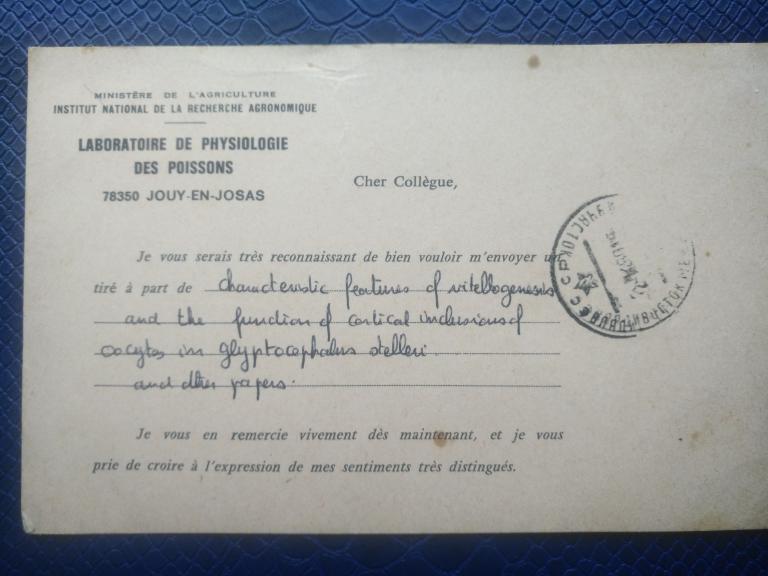 MINISTÈRE DE L'AGRICULTURE
INSTITUT NATIONAL DE LA RECHERCHE AGRONOMIQUE
LABORATOIRE DE PHYSIOLOGIE
DES POISSONS
78350 JOUY-EN-JOSAS
Cher Collègue,
Je vous serais très reconnaissant de bien vouloir m'envoyer un
tiré à part de characteristic features of vitellogenesis
and the function of cortical inclusions of
oocytes in glyptocephalus stelleri.
and other papers.
Je vous en remercie vivement dès maintenant, et je vous
prie de croire à l'expression de mes sentiments très distingués.
СССР